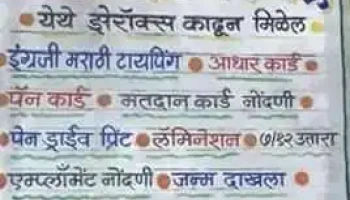 येथे झेरॉक्स काढून मिळेल
इंग्रजी मराठी टायपिंग • आधार कार्ड
पॅन कार्ड • मतदान कार्ड नोंदणी
पेन ड्राईव प्रिंट • लॅमिनेशन • ७/१२ उतारा
एम्प्लॉमेंट नोंदणी • जन्म दाखला